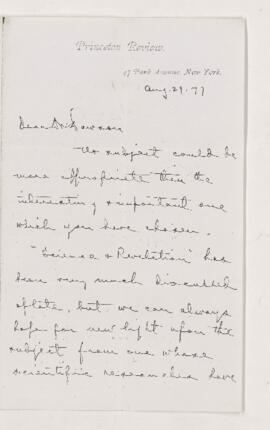 Princeton Review.
47 Park Avenue, New York.
Aug. 29. 77
Dear Dr Dawson
No subject could be
more appropriate than the
interesting & important one
which you have chosen.
"Science & Revelation" has
been very much discussed
of late, but we can always
hope for new light upon the
subject from one whose
scientific researches have